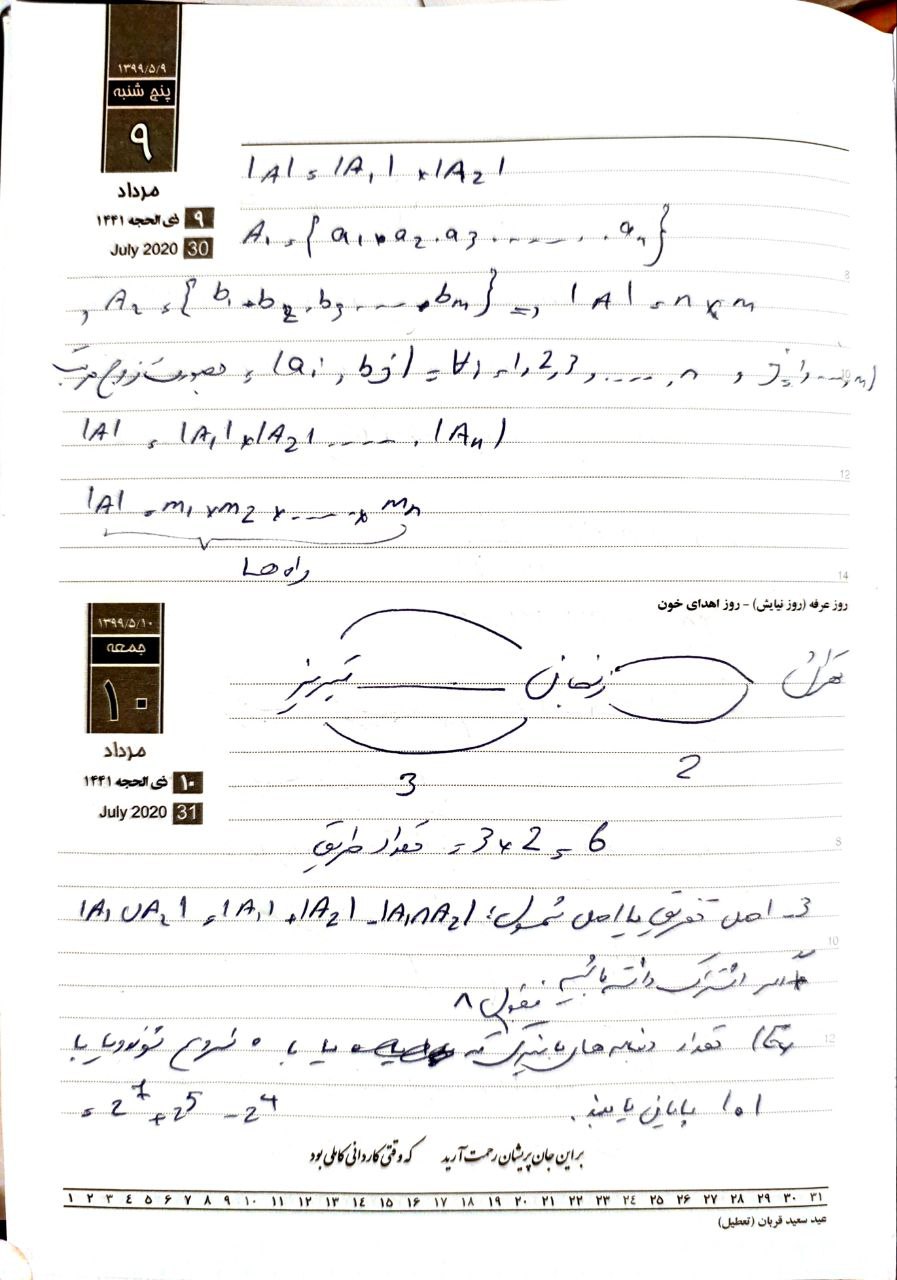 ۱۳۹۹/۵/۹
پنج شنبه
۹
مرداد
۹ ذی الحجه ۱۴۴۱
July 2020 30
|A| = |A₁| × |A₂|
A₁ = { a₁, a₂, a₃ ........ aₙ }
, A₂ = { b₁, b₂, b₃ ..... bₘ } ⇒ |A| = n × m
8
بصورت زوج مرتب = (aᵢ, bⱼ) = ∀ᵢ = 1, 2, 3, ....., n , j = 1, ...., m)
10
|A| = |A₁| × |A₂| ...... |Aₙ|
12
|A| = m₁ × m₂ × ..... × mₙ
راه ها
14
روز عرفه (روز نیایش) - روز اهدای خون
۱۳۹۹/۵/۱۰
جمعه
۱۰
مرداد
۱۰ ذی الحجه ۱۴۴۱
July 2020 31
تهران زنجان تبریز
2
3
تعداد طریق = 3 × 2 = 6
8
3- اصل تفریق یا اصل شمول: |A₁ ∪ A₂| = |A₁| + |A₂| - |A₁ ∩ A₂|
10
اشتراک داشته باشیم
بطول ۸
تعداد دنباله های باینری که یا با 0 شروع شوند و یا با
12
101 پایان یابند.
= 2⁷ + 2⁵ - 2⁴
بر این جان پریشان رحمت آرید که وقتی کاردانی کاملی بود
۱ ۲ ۳ ۴ ۵ ۶ ۷ ۸ ۹ ۱۰ ۱۱ ۱۲ ۱۳ ۱۴ ۱۵ ۱۶ ۱۷ ۱۸ ۱۹ ۲۰ ۲۱ ۲۲ ۲۳ ۲۴ ۲۵ ۲۶ ۲۷ ۲۸ ۲۹ ۳۰ ۳۱
عید سعید قربان (تعطیل)